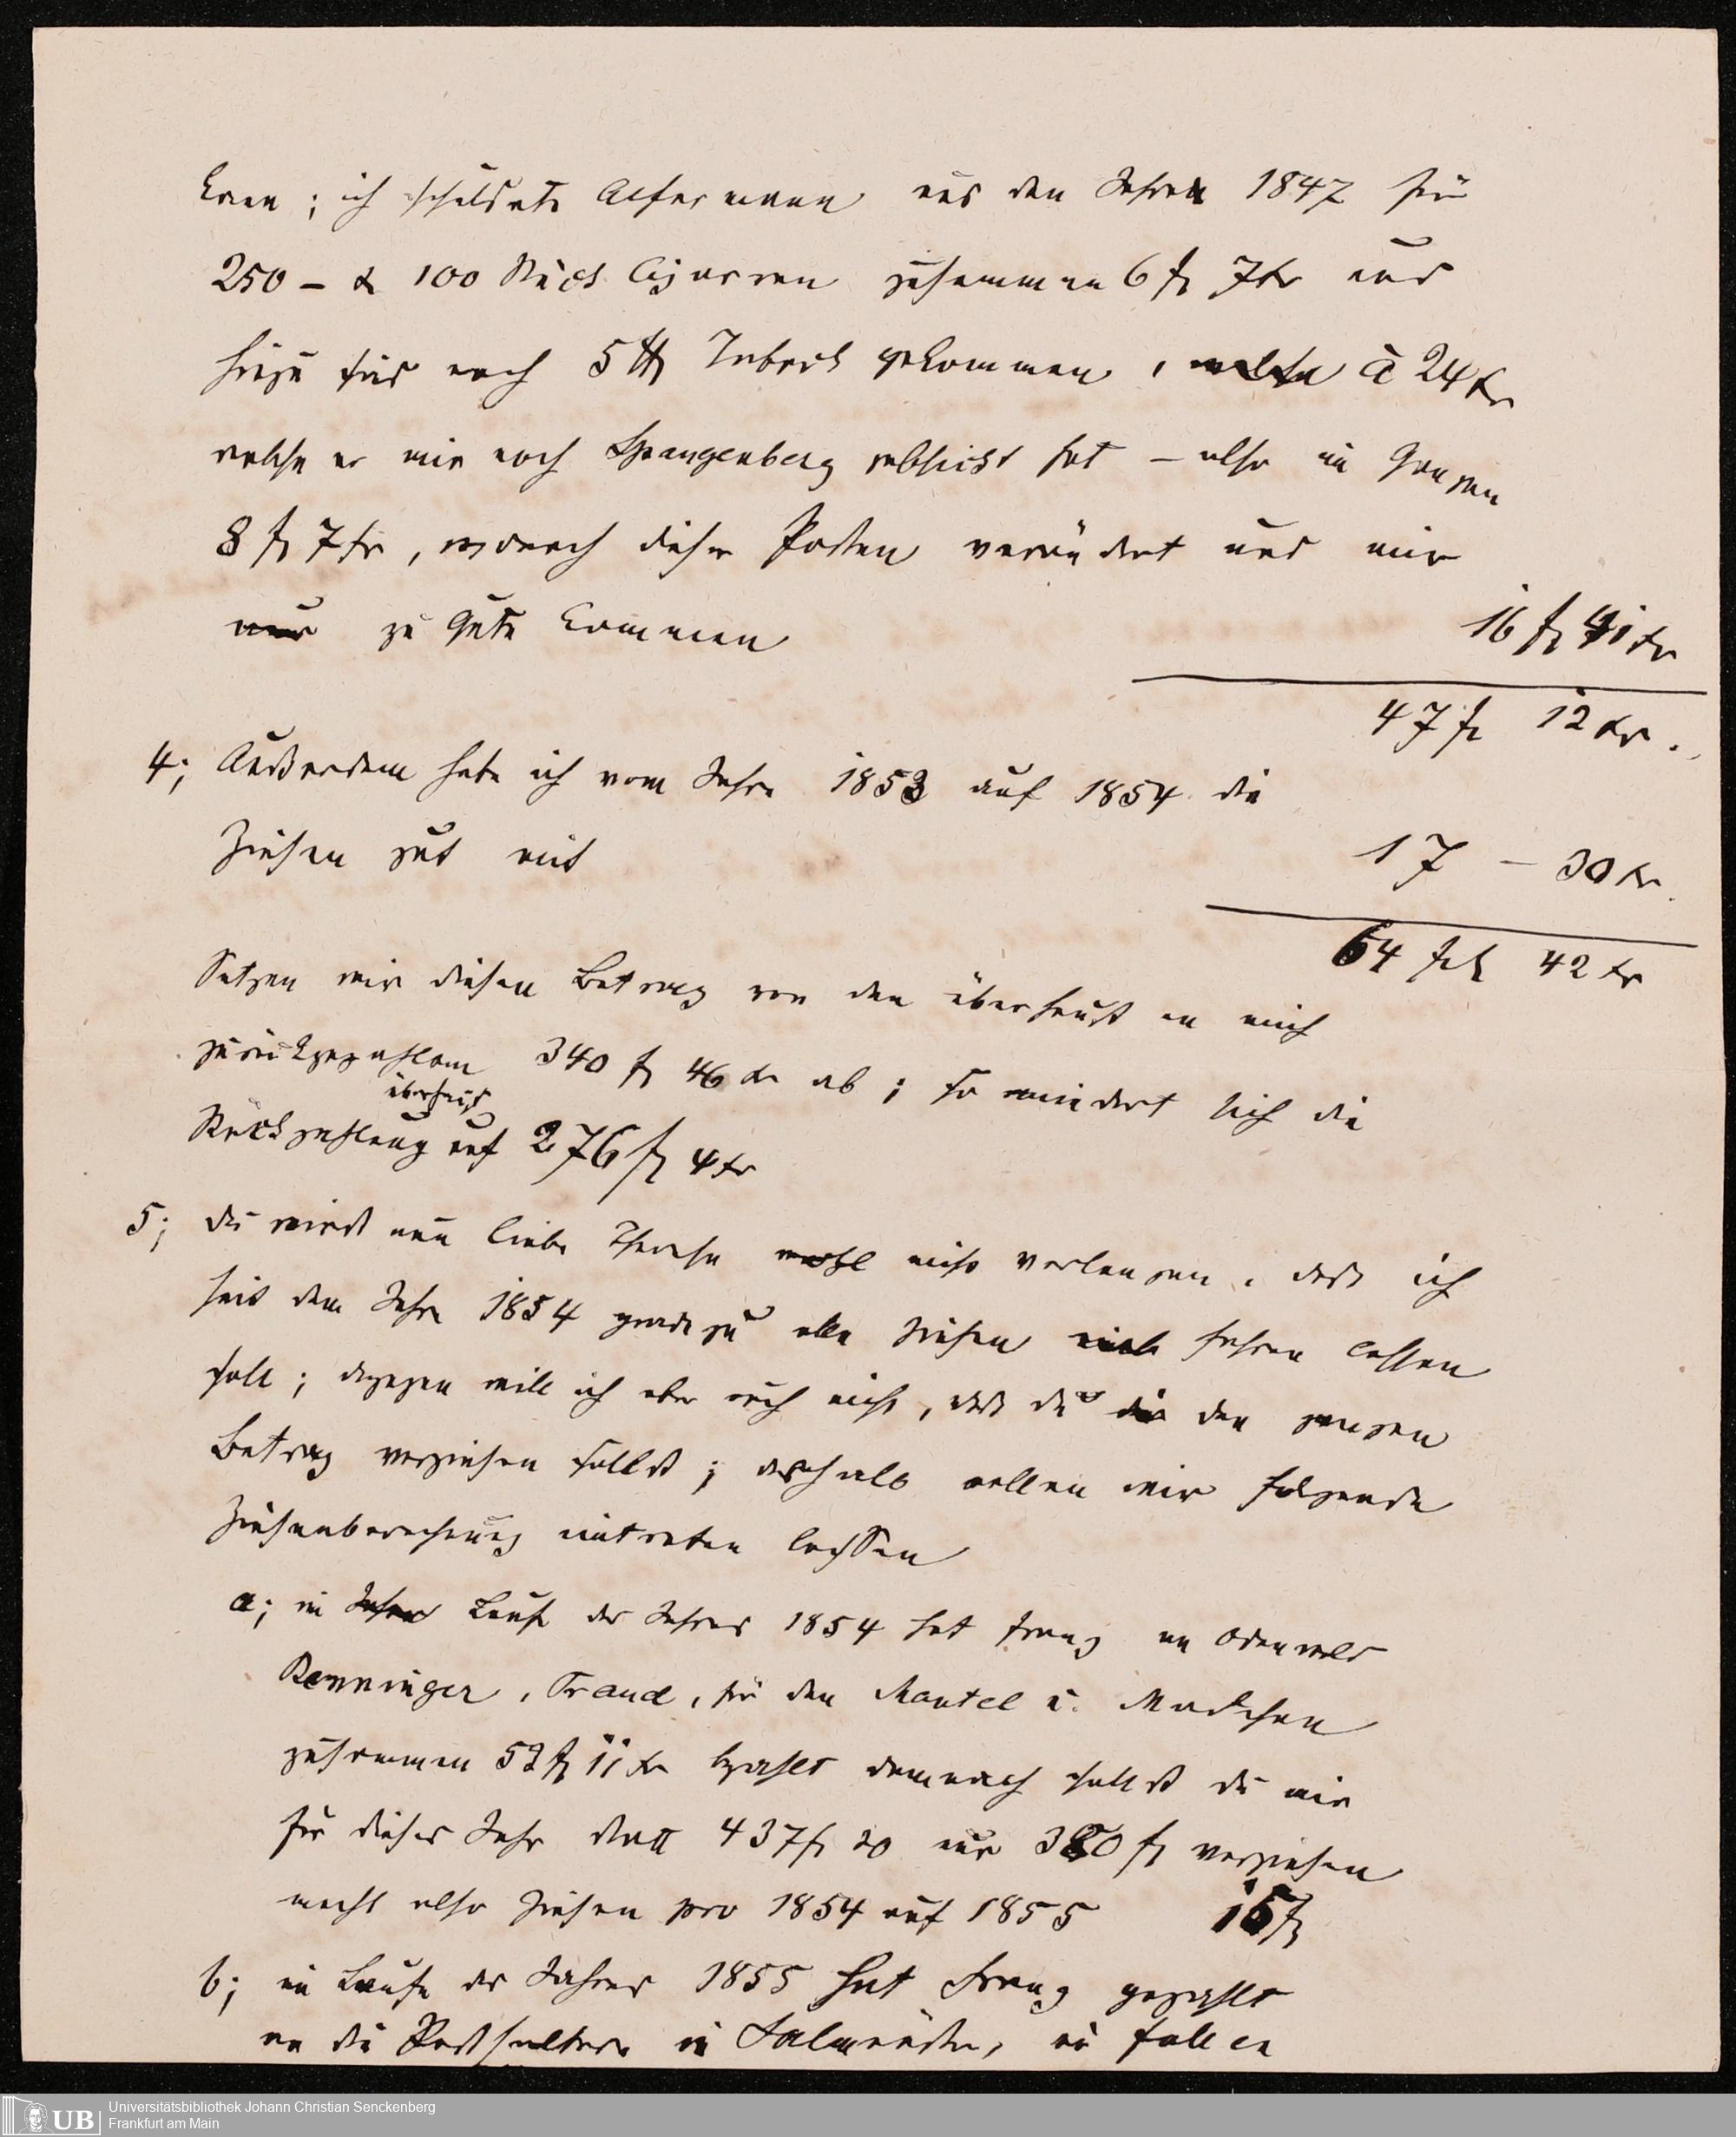 kann; ich schuldete Ackermann aus den Jahren 1847 für
250 – & 100 Stück Cigarren zusammen 6 fl 7 kr und
hiezu sind noch 5 ℔ Taback gekommen, à 24 kr
welche er mir nach Spangenberg geschickt hat – also im Ganzen
8 fl 7 kr, wonach dieser Posten verändert und mir
nur zu Gute kommen
16 fl 41 kr
47 fl 12 kr.
4; Außerdem habe ich vom Jahre 1853 auf 1854 die
Zinsen gut mit
17 – 30 kr.
64 fl 42 kr
Setzen wir diesen Betrag von den überhaupt an mich
zurückgezahlten 340 fl 46 kr ab; so mindert sich die
überhaupt
Rückzahlung auf 276 fl 4 kr
5; Du wirst nun liebe Therese wohl nicht verlangen, daß ich
seit dem Jahre 1854 geradezu alle Zinsen fahren lassen
soll; dagegen will ich aber auch nicht, daß du die den ganzen
Betrag verzinsen sollst; deshalb wollen wir folgende
Zinsenberechnung eintreten lassen
a; im Jahre Laufe des Jahres 1854 hat Franz an Odenwald
Renninger, Traud, für den Mantel u. Madchen
zusammen 52 fl 11 kr bezahlt demnach sollst du mir
für dieses Jahr statt 437 fl 20 nur 380 fl verzinsen
macht also Zinsen pro 1854 auf 1855 15 fl
b; im Laufe des Jahres 1855 hat Franz gezahlt
an die Posthalterei in Salmünster, in Fulda